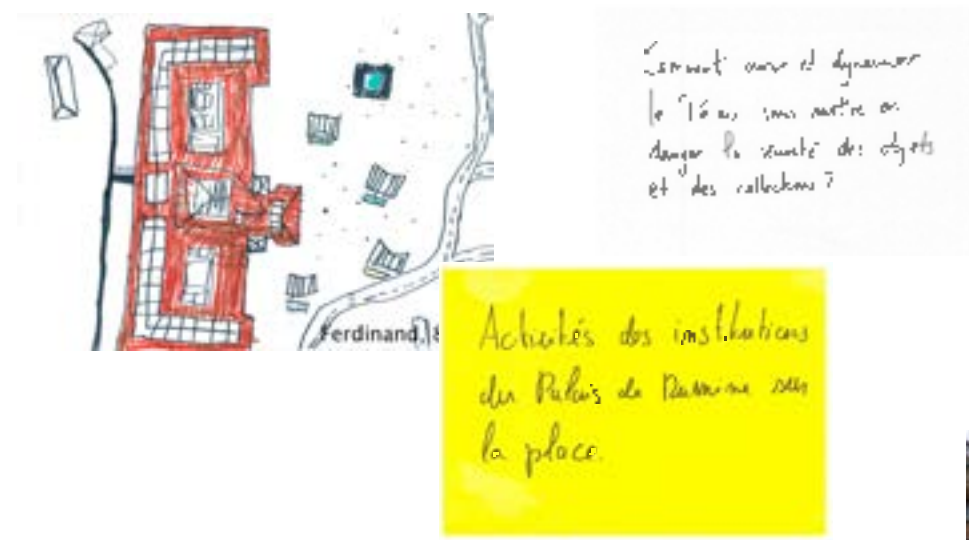 Ferdinand, 8
Comment ouvrir et dynamiser
le
danger la sûreté des objets
et des collections ?
Activités des institutions
du Palais de Rumine sur
la place.